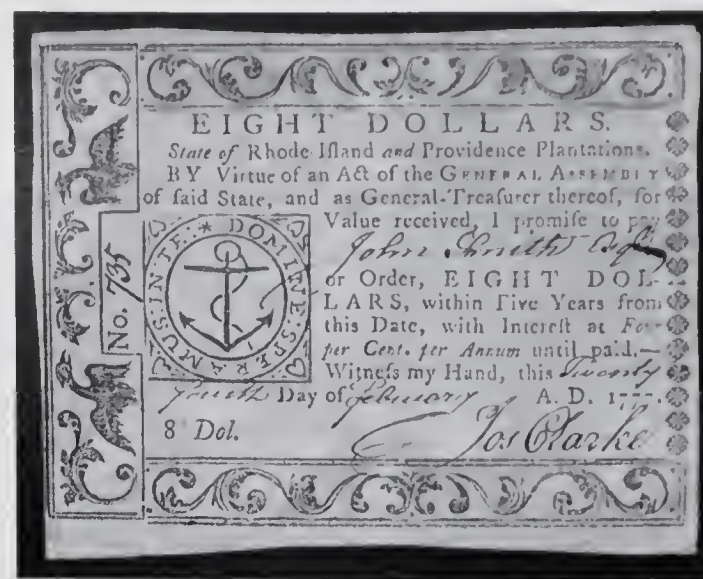 EIGHT DOLLARS.
State of Rhode-Iſland and Providence Plantations.
BY Virtue of an Act of the GENERAL ASSEMBLY
of ſaid State, and as General-Treaſurer thereof, for
Value received, I promiſe to pay
John Smith Eſqr
or Order, EIGHT DOL-
LARS, within Five Years from
this Date, with Intereſt at Four
per Cent. per Annum until paid,—
Witneſs my Hand, this Twenty
fourth Day of February A. D. 1777.
8 Dol.
Jos Clarke
No. 735
IN TE * DOMINE SPERAMUS